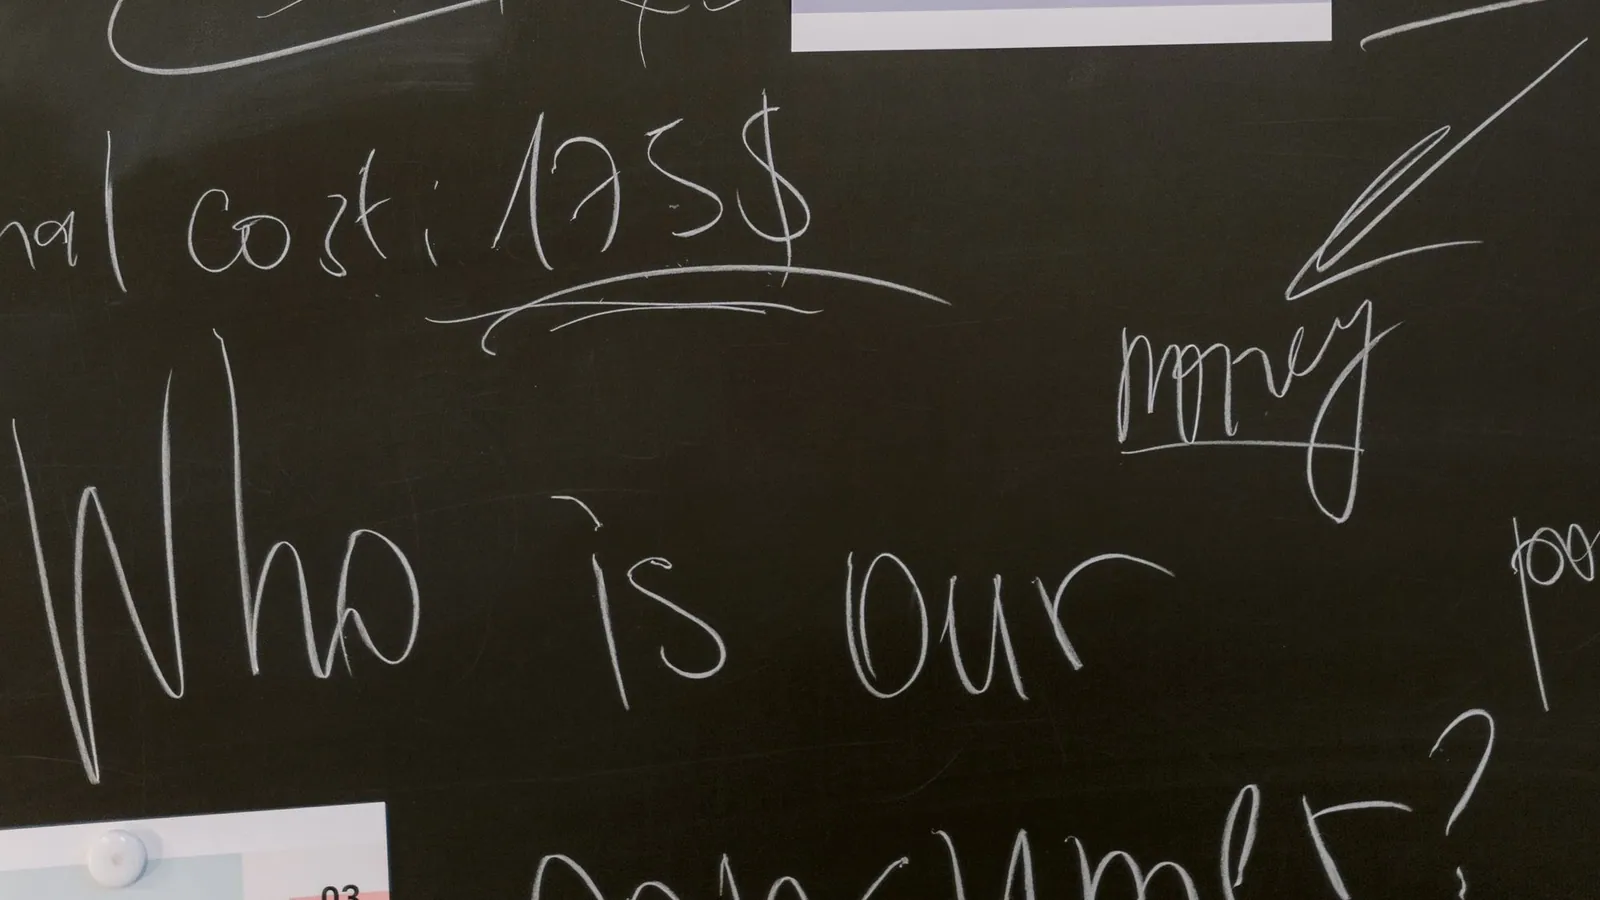 cost: 175$
money
Who is our
consumer?
03